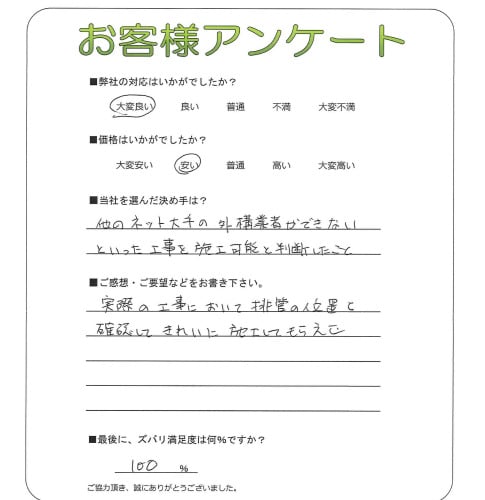 お客様アンケート
■弊社の対応はいかがでしたか？
大変良い 良い 普通 不満 大変不満
■価格はいかがでしたか？
大変安い 安い 普通 高い 大変高い
■当社を選んだ決め手は？
他のネット大手の外構業者ができない
といった工事を施工可能と判断したこと
■ご感想・ご要望などをお書き下さい。
実際の工事において排管の位置も
確認してきれいに施工してもらえた
■最後に、ズバリ満足度は何％ですか？
100 ％
ご協力頂き、誠にありがとうございました。